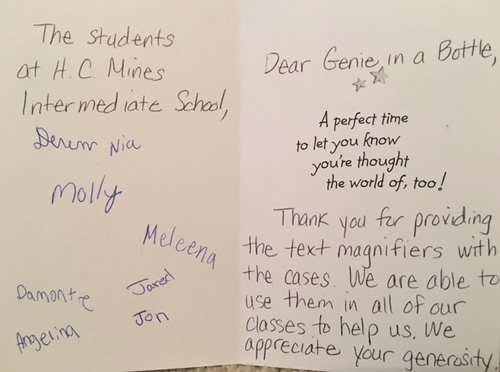 The students
at H.C. Mines
Intermediate School,
Nia
Molly
Meleena
Damonte
Jared
Angelina
Jon
Dear Genie in a Bottle,
A perfect time
to let you know
you're thought
the world of, too!
Thank you for providing
the text magnifiers with
the cases. We are able to
use them in all of our
classes to help us. We
appreciate your generosity!